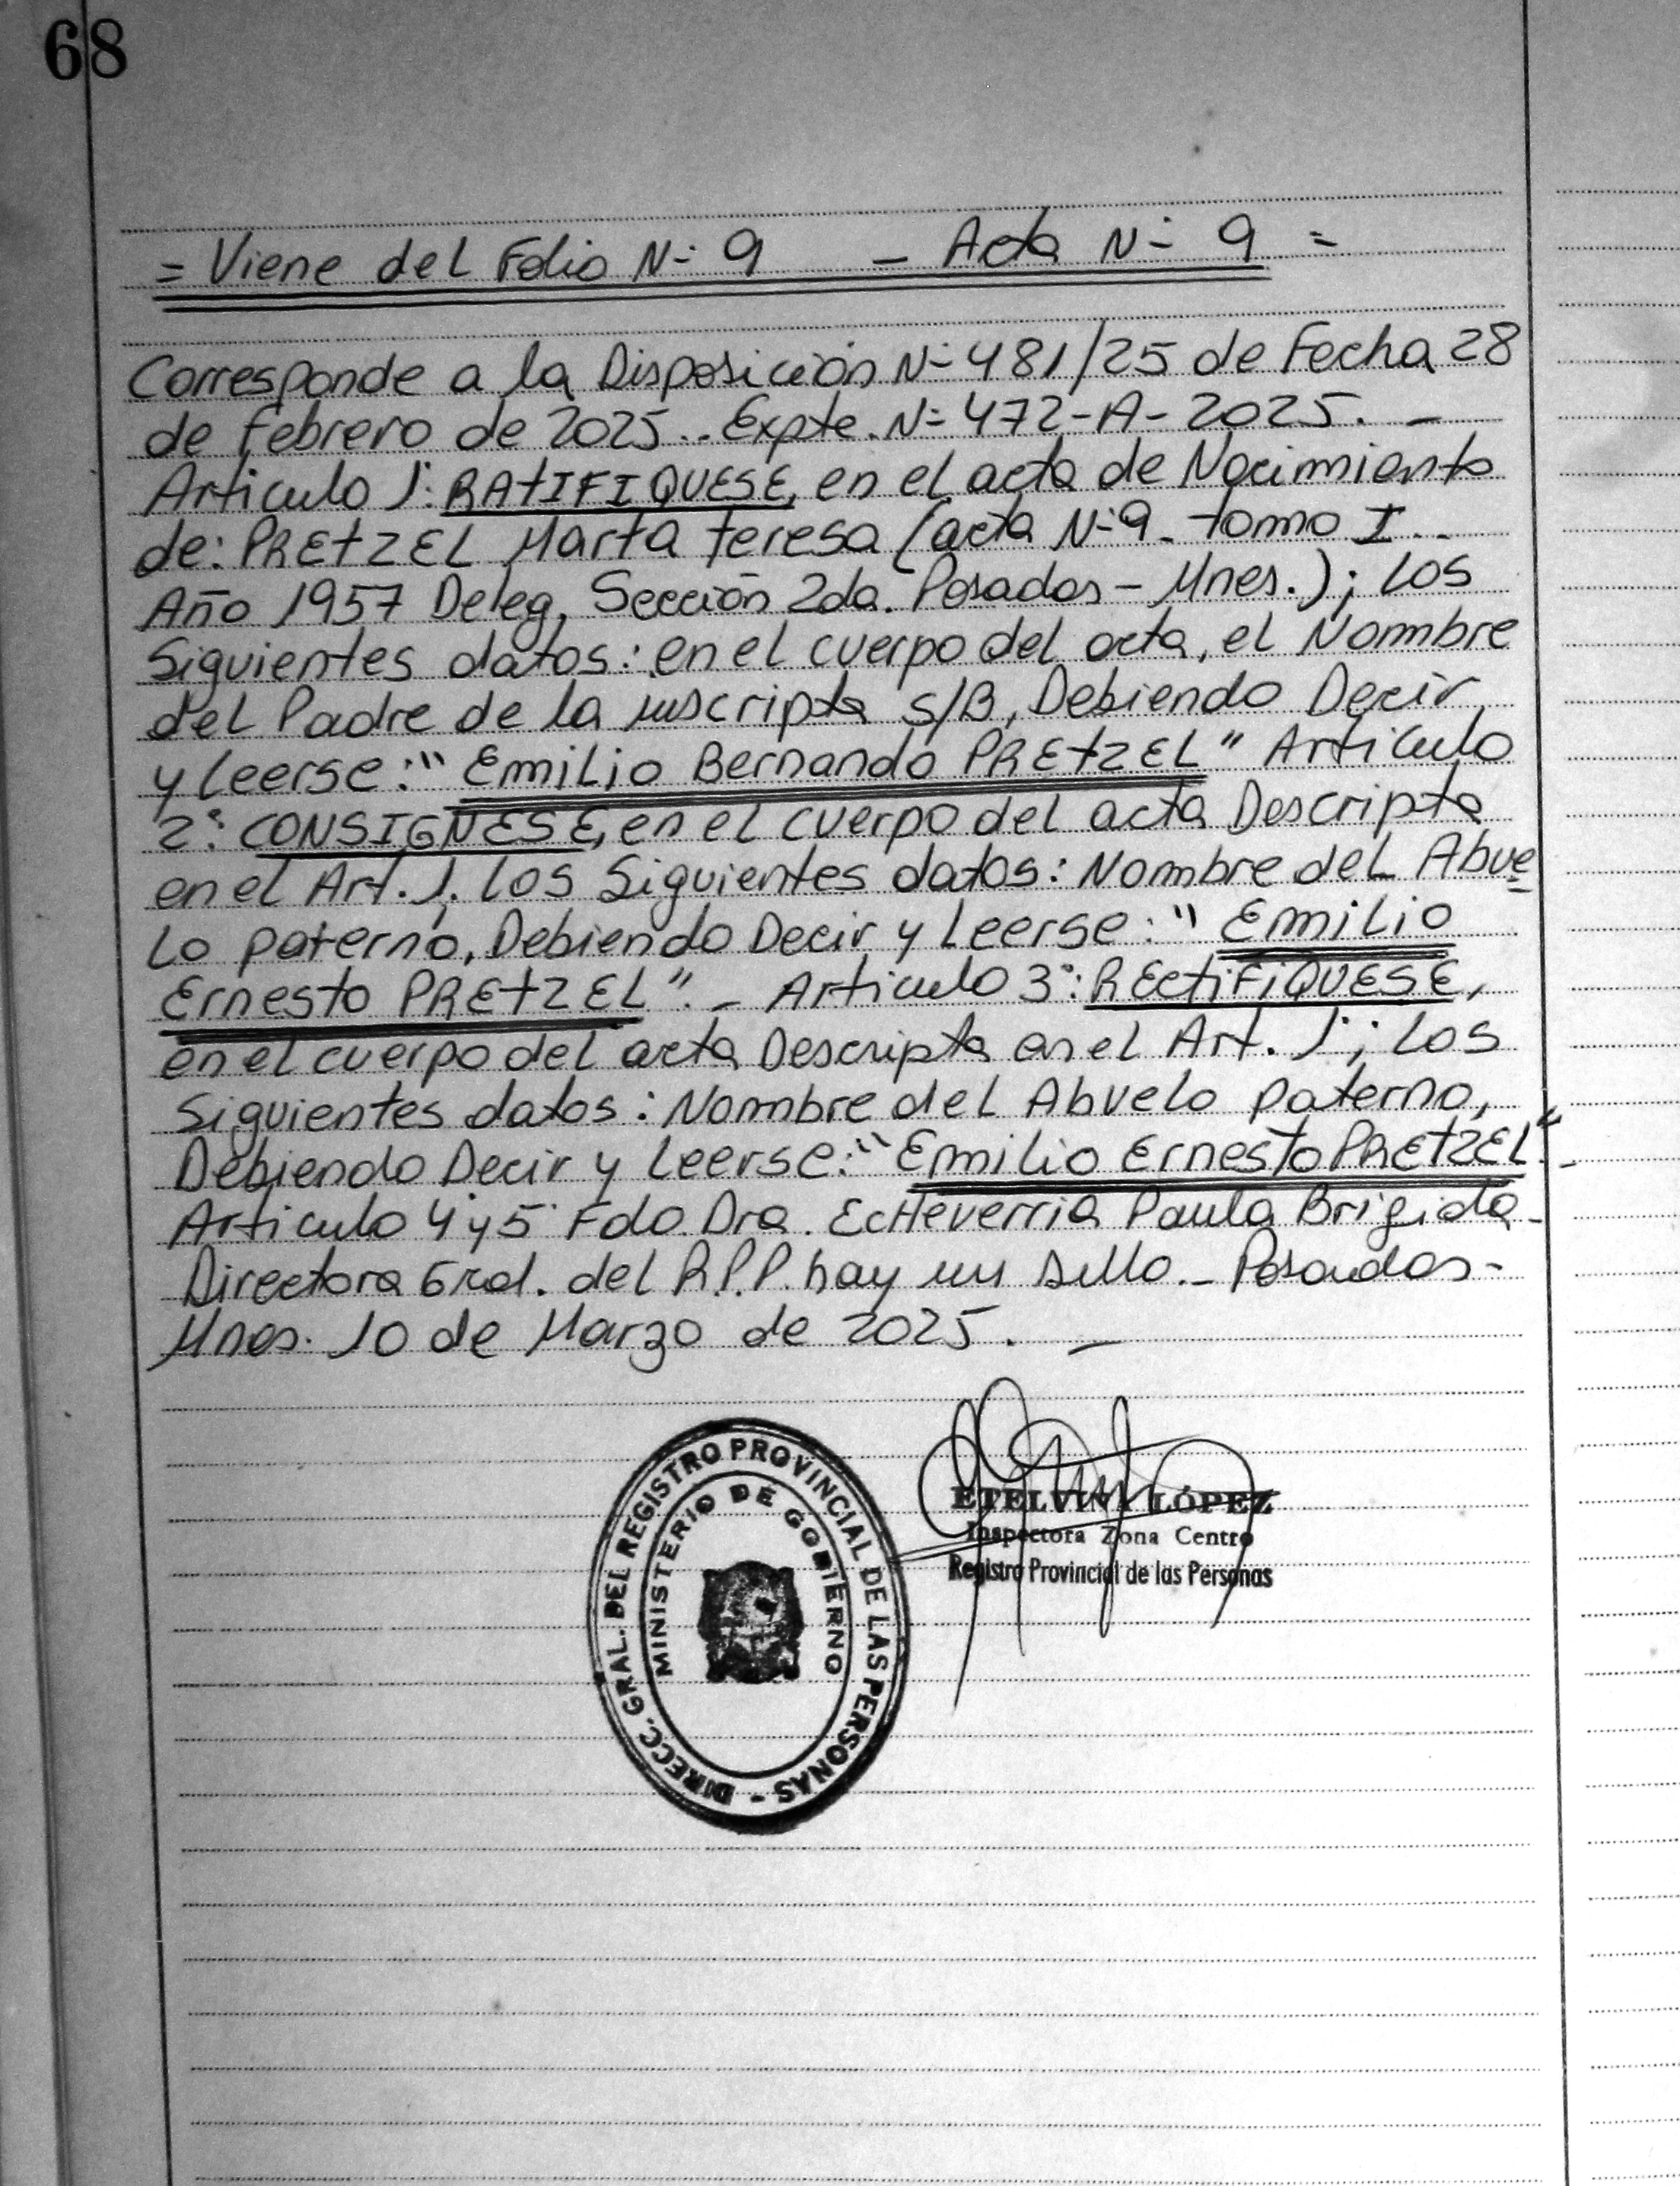 68
= Viene del Folio N- 9 - Acta N- 9 =
Corresponde a la Disposición N- 481/25 de Fecha 28
de Febrero de 2025.. Expte. N- 472-A-2025. -
Articulo 1: RATIFIQUESE, en el acta de Nacimiento
de: PRETZEL Marta Teresa (acta N-9- Tomo I..
Año 1957 Deleg. Sección 2da. Posadas - Mnes.); los
Siguientes datos: en el cuerpo del acta, el Nombre
del Padre de la inscripta S/B, Debiendo Decir
y leerse: "Emilio Bernando PRETZEL" Articulo
2°: CONSIGNESE, en el cuerpo del acta Descripta
en el Art. 1. los Siguientes datos: Nombre del Abue
lo paterno, Debiendo Decir y Leerse: "Emilio
Ernesto PRETZEL". - Articulo 3°: RECTIFIQUESE,
en el cuerpo del acta Descripta en el Art. 1°; los
Siguientes datos: Nombre del Abuelo paterno,
Debiendo Decir y Leerse: "Emilio Ernesto PRETZEL". -
Articulo 4 y 5 Fdo. Dra. Echeverria Paula Brigida -
Directora Gral. del R.P.P. hay un sello. - Posadas -
Mnes. 10 de Marzo de 2025. -
DIRECC. GRAL. DEL REGISTRO PROVINCIAL DE LAS PERSONAS -
MINISTERIO DE GOBIERNO
ETELVINA LÓPEZ
Inspectora Zona Centro
Registro Provincial de las Personas